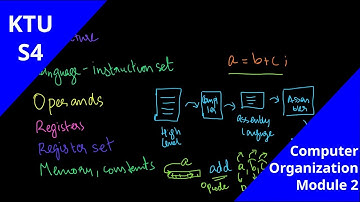 KTU
S4
language - instruction set
a = b + c ;
Operands
Registers
Register set
Memory, constants
High
Level
Assembly
Language
a
add
opcode
Computer
Organization
Module 2